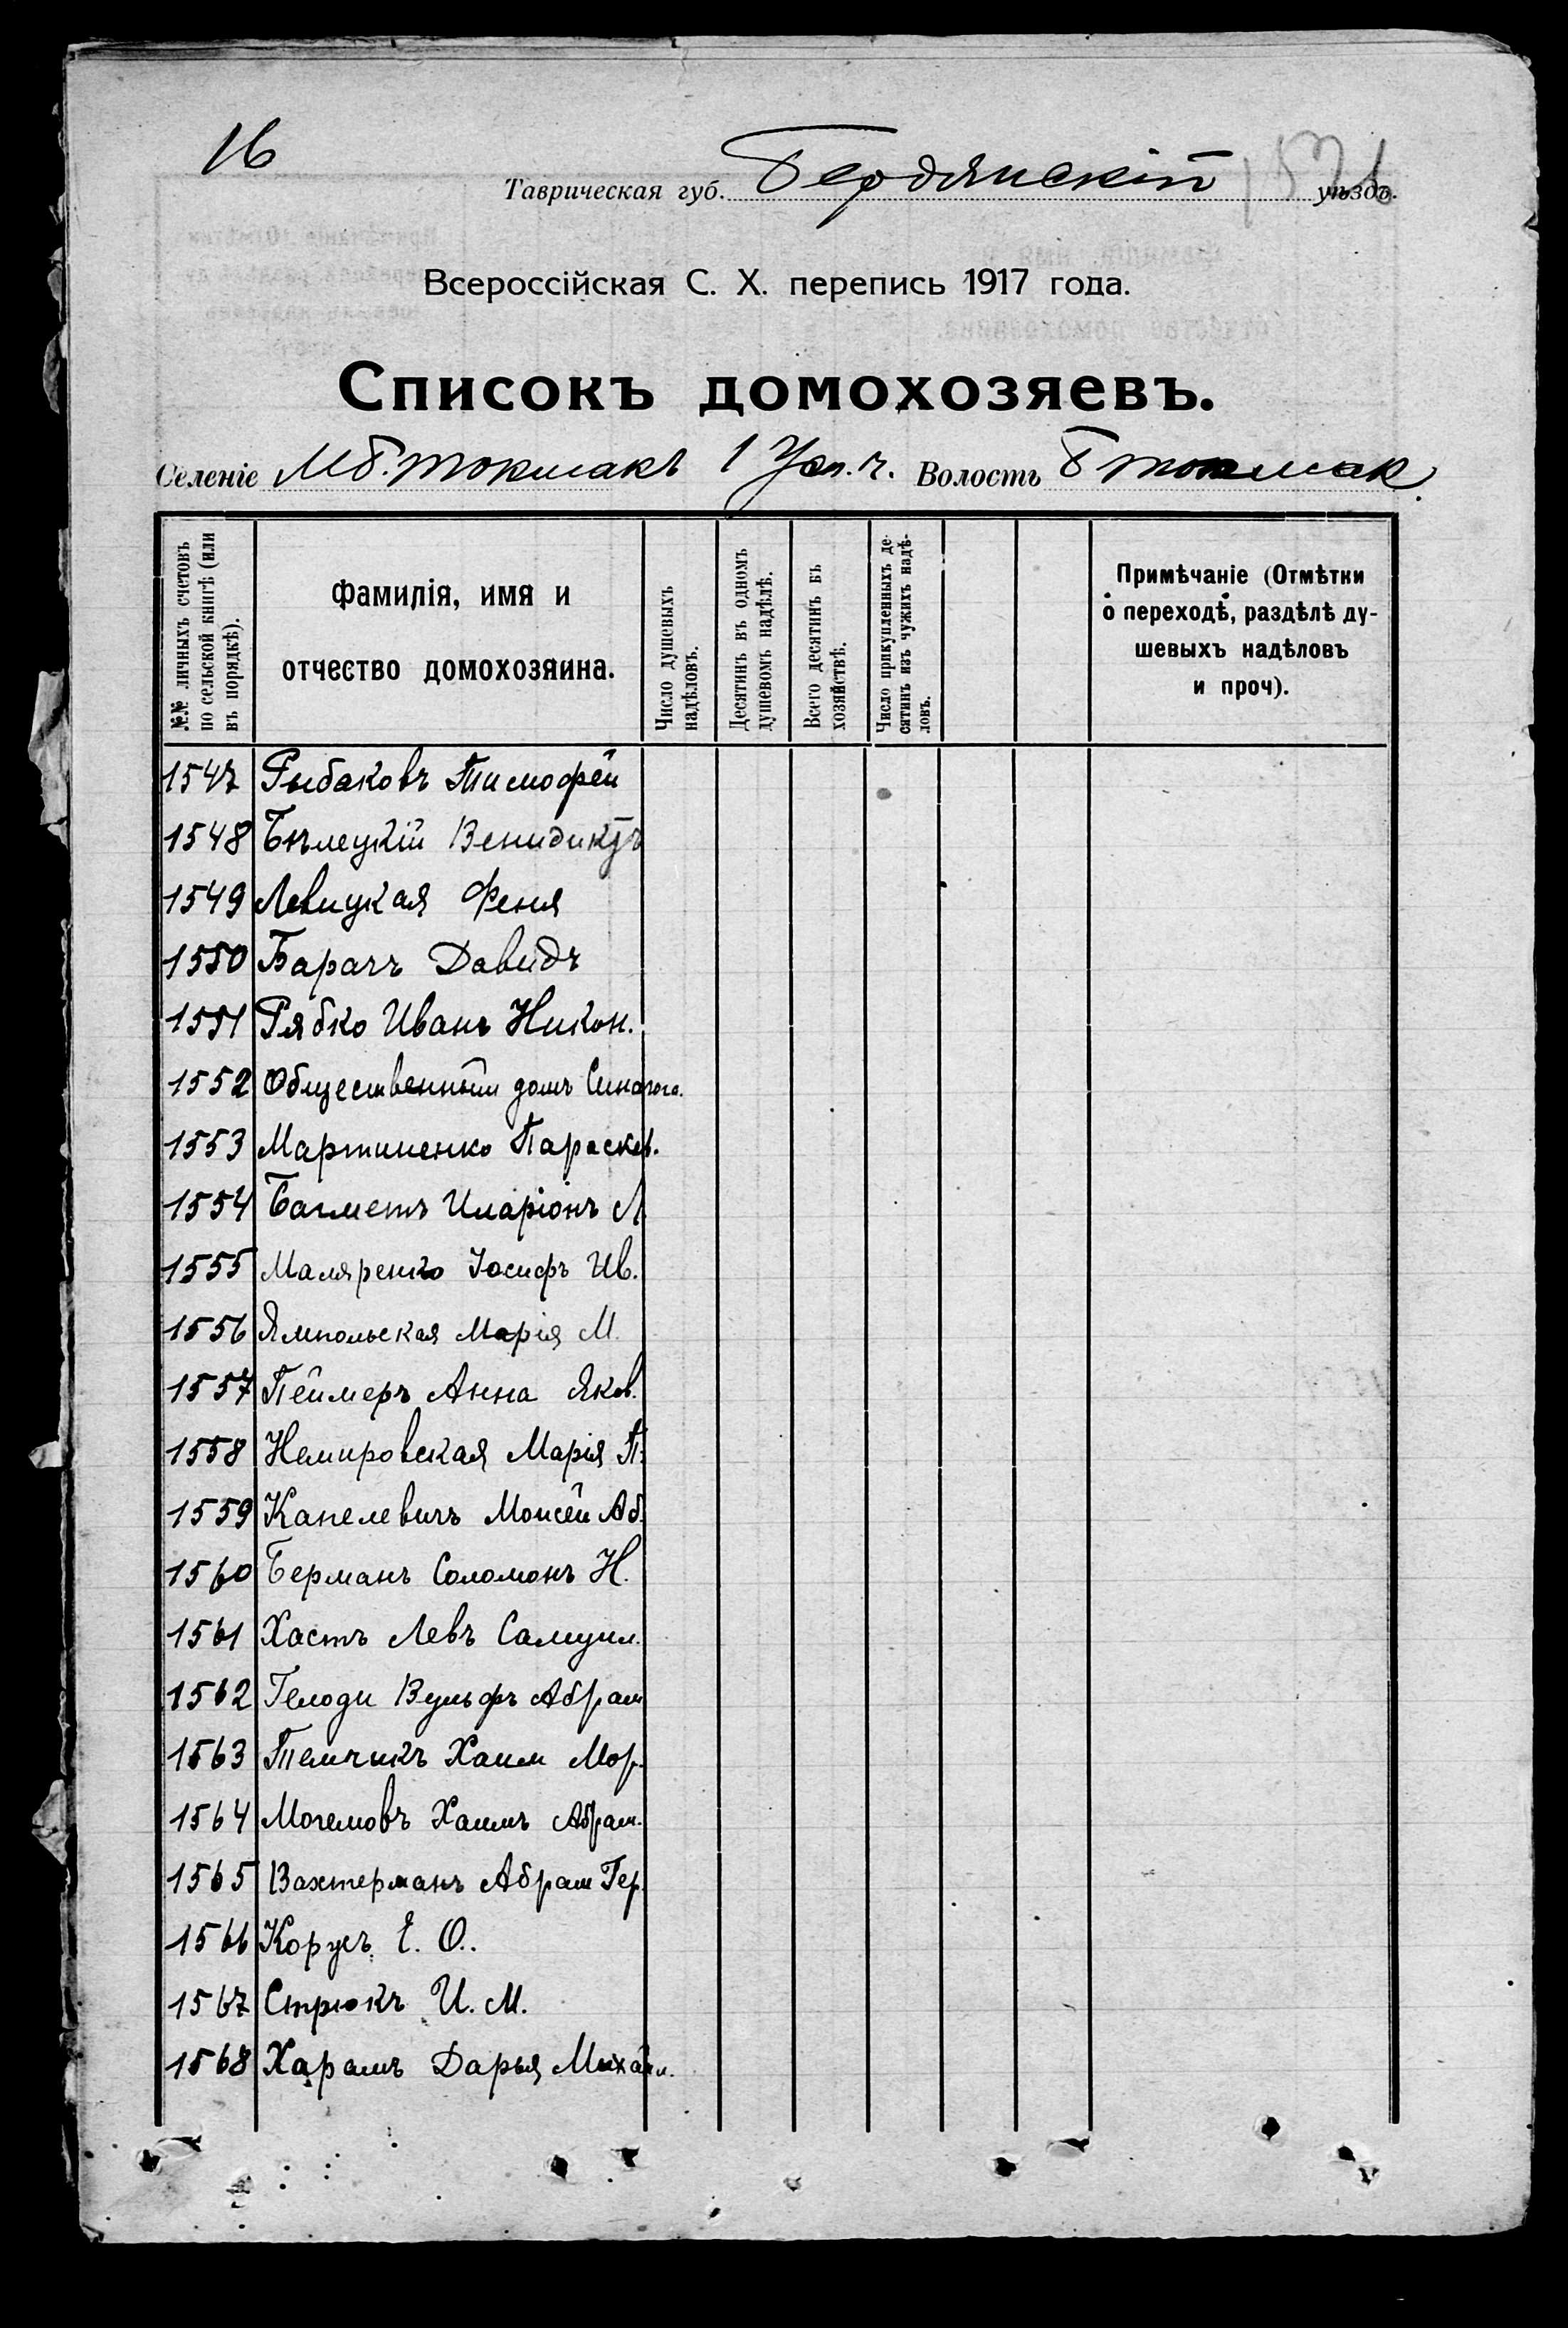 16
Таврическая губ. Бердянскій уѣздъ.
Всероссійская С. Х. перепись 1917 года.
Списокъ домохозяевъ.
Селеніе Мб. Токмакъ 1 Уч. ч. Волость Б Токмак.
№№ личныхъ счетовъ по сельской книгѣ (или въ порядкѣ).
Фамилія, имя и отчество домохозяина.
Число душевыхъ надѣловъ.
Десятинъ въ одномъ душевомъ надѣлѣ.
Всего десятинъ въ хозяйствѣ.
Число прикупленныхъ десятинъ изъ чужихъ надѣловъ.
Примѣчаніе (Отмѣтки о переходѣ, раздѣлѣ душевыхъ надѣловъ и проч).
1547 Рыбаковъ Тимофей
1548 Бѣлецкій Венидиктъ
1549 Левицкая Феня
1550 Барачъ Давидъ
1551 Рябко Иванъ Никон.
1552 Общественный домъ Синагога.
1553 Мартиненко Параскев.
1554 Багметъ Иларіонъ Л
1555 Маляренко Іосифъ Ив.
1556 Ямпольская Марія М.
1557 Пеймеръ Анна Яков.
1558 Немировская Марія П.
1559 Капелевичъ Моисей Аб.
1560 Берманъ Соломонъ Н.
1561 Хастъ Левъ Самуил.
1562 Гелоди Вульфъ Абрам
1563 Темчикъ Хаим Мор.
1564 Могемовъ Хаимъ Абрам.
1565 Вахтерманъ Абрам Гер.
1566 Корусъ Е. О.
1567 Стрюкъ И. М.
1568 Харамъ Дарья Михайл.